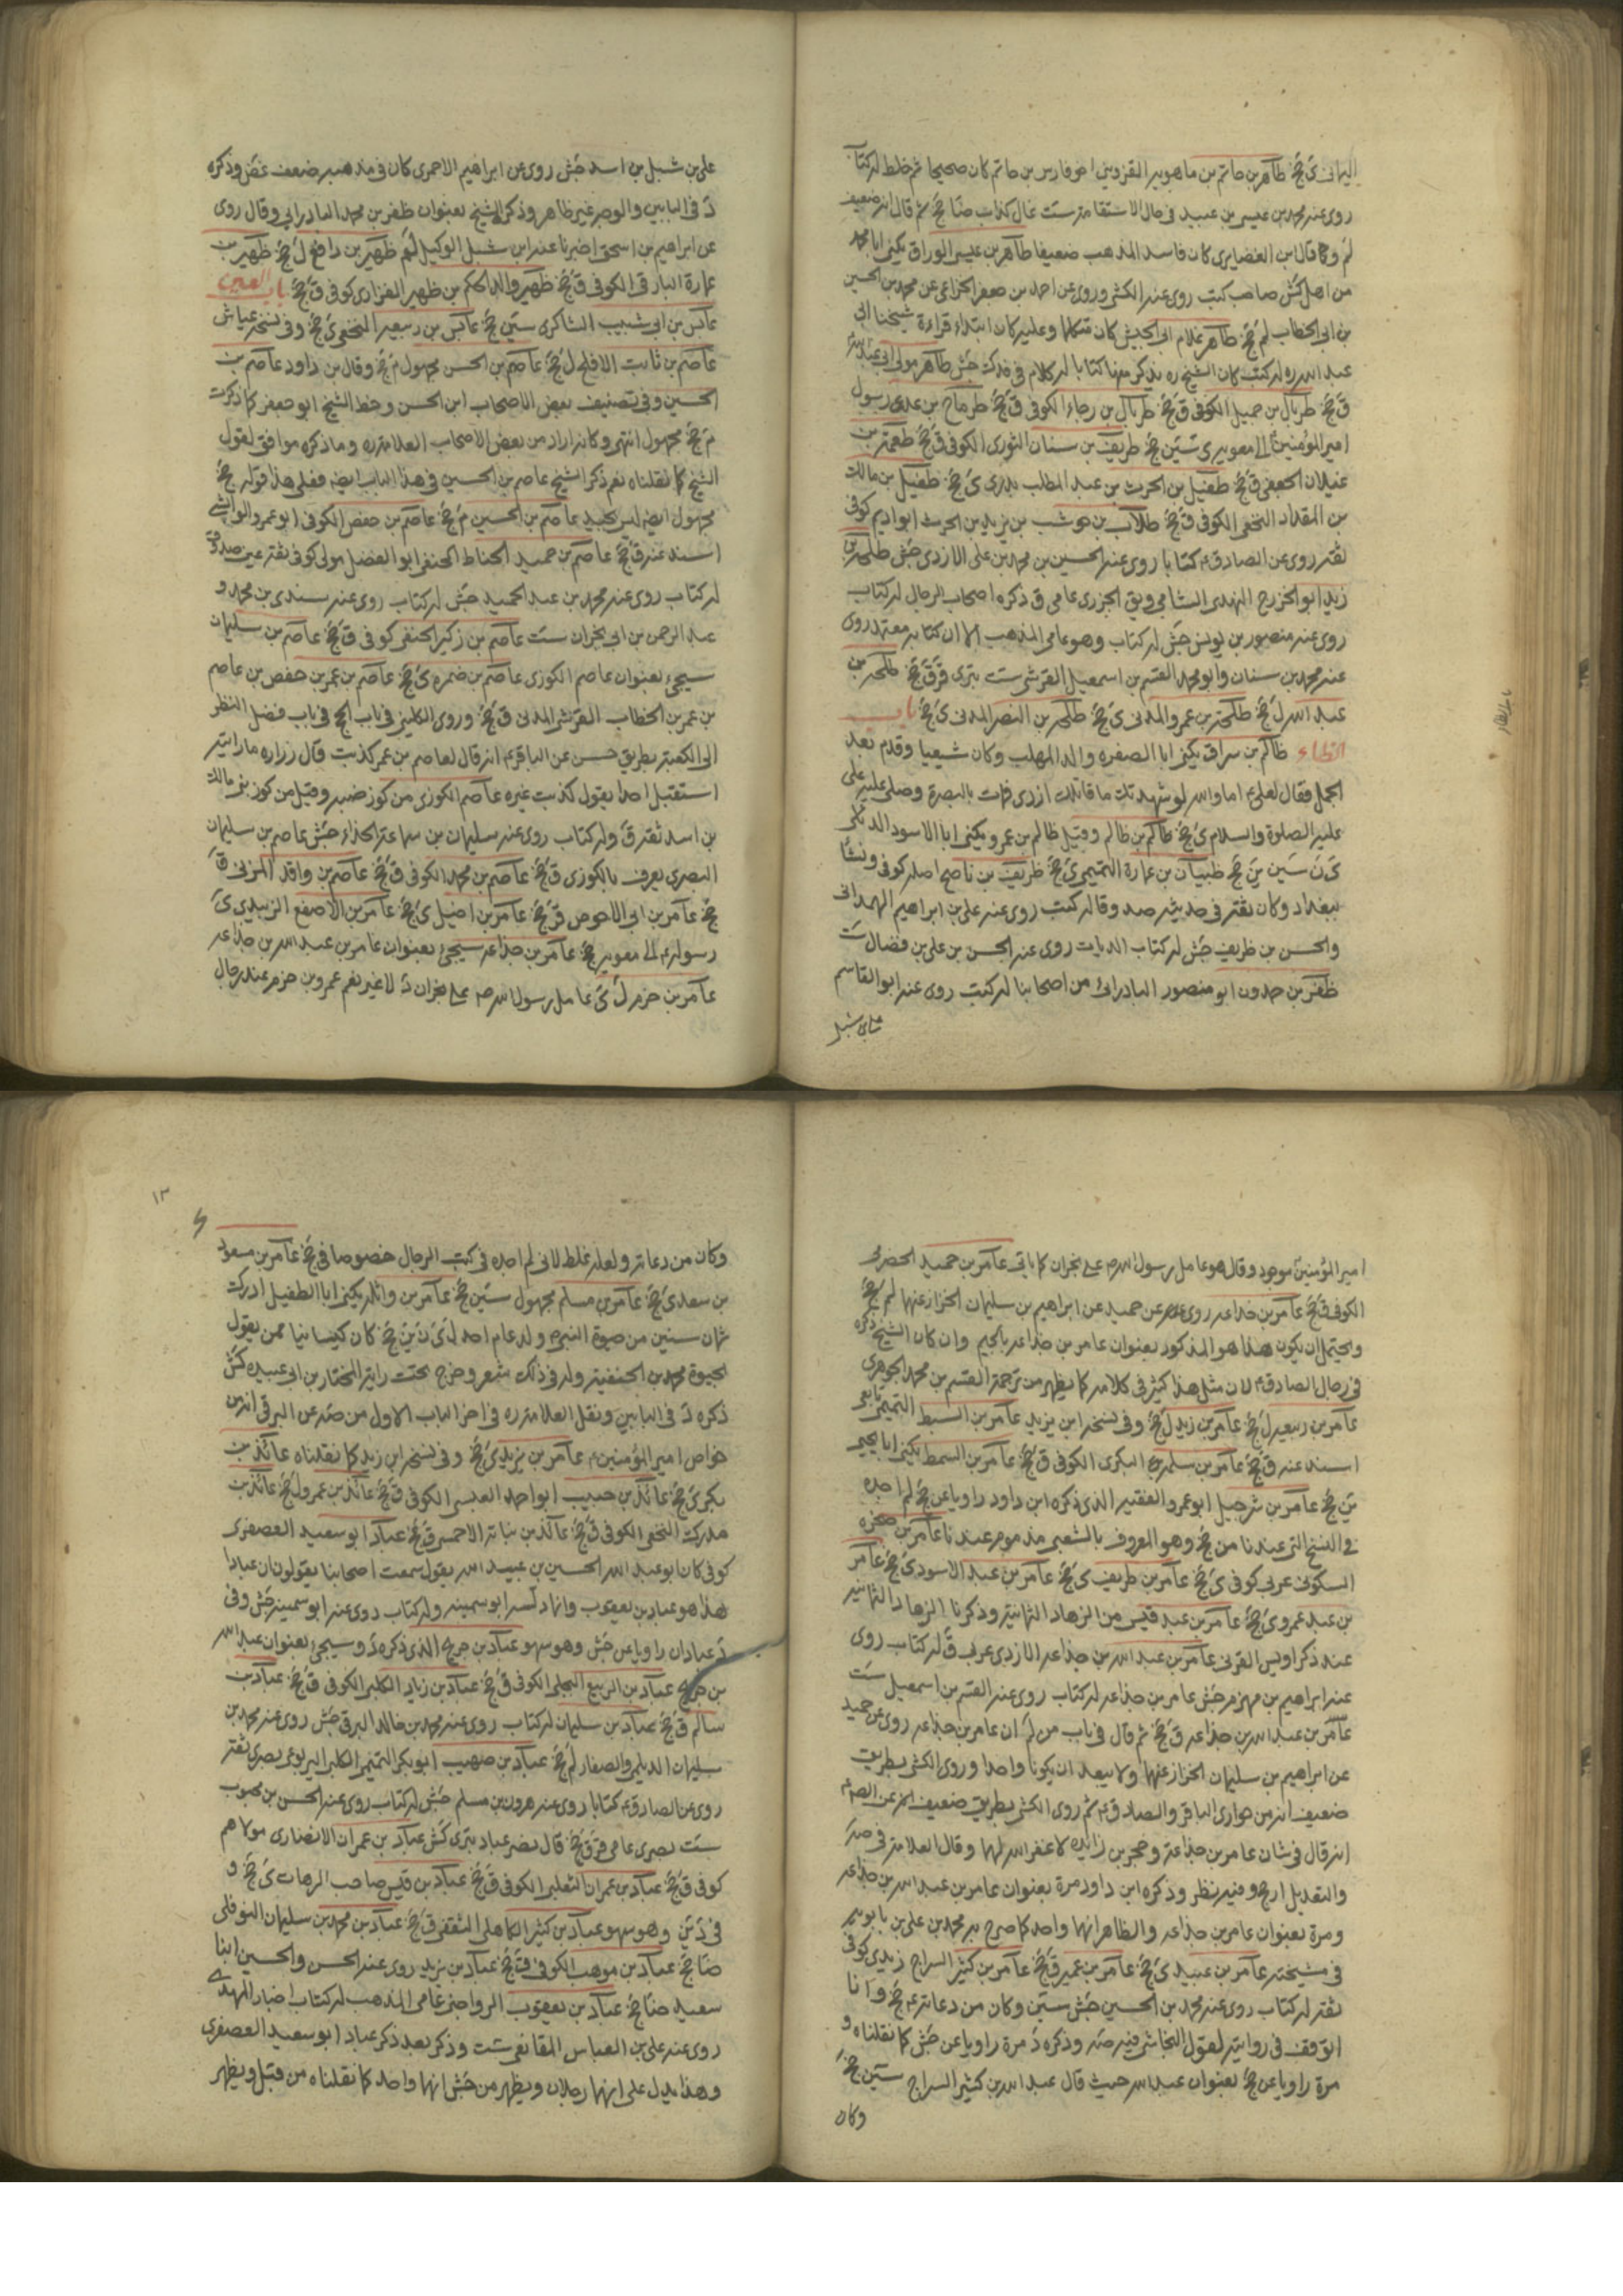 اليماني ي جخ طاهر بن حاتم بن ماهويه القزويني اخو فارس بن حاتم كان صحيحا ثم خلط له كتاب
روى عنه محمد بن عيسى بن عبيد في حال الاستقامة ست غال كذاب ضا جخ ثم قال انه ضعيف
لم وكذا قال ابن الغضايري كان فاسد المذهب ضعيفا طاهر بن عيسى الوراق يكنى ابا محمد
من اهل كش صاحب كتب روى عنه الكشي وروى عن احمد بن جعفر الخزاعي عن محمد بن الحسين
بن ابي الخطاب لم جخ طاهر غلام ابي الجيش كان متكلما وعليه كان ابتداء قراءة شيخنا ابي
عبد الله ره له كتب كان الشيخ ره يذكر منها كتابا له كلام في فدك جش طاهر مولى ابي عبد الله
ق جخ طربال بن جميل الكوفي ق جخ طربال بن رجاء الكوفي ق جخ طرماح بن عدي رسول
امير المؤمنين الى معوية ي سين جخ طريف بن سنان الثوري الكوفي ق جخ طعمة بن
غيلان الجعفي ق جخ طفيل بن الحرث بن عبد المطلب بدري ي جخ طفيل بن مالك
بن المقداد النخعي الكوفي ق جخ طلاب بن حوشب بن يزيد بن الحرث ابو اديم كوفي
ثقة روى عن الصادق ع كتابا روى عنه الحسين بن محمد بن علي الازدي جش طلحة بن
زيد ابو الخزرج النهدي الشامي ويق الجزري عامي ق ذكره اصحاب الرجال له كتاب
روى عنه منصور بن يونس جش له كتاب وهو عامي المذهب الا ان كتابه معتمد روى
عنه محمد بن سنان وابو محمد القسم بن اسمعيل القرشي ست بتري قر ق جخ طلحة بن
عبد الله ل جخ طلحة بن عمرو المدني ي جخ طلحة بن النضر المدني ي جخ باب
الظاء ظالم بن سراق يكنى ابا الصفره والد المهلب وكان شيعيا وقدم بعد
الجمل فقال لعلي ع اما والله لو شهدتك ما قاتلك ازدي فمات بالبصرة وصلى عليه علي
عليه الصلوة والسلام ي جخ ظالم بن ظالم وقيل ظالم بن عمرو يكنى ابا الاسود الدئلي
ي ن سين ين جخ ظبيان بن عمارة التميمي ي جخ ظريف بن ناصح اصله كوفي ونشأ
ببغداد وكان ثقة في حديثه صد وقا له كتب روى عنه علي بن ابراهيم الهمداني
والحسن بن ظريف جش له كتاب الديات روى عنه الحسن بن علي بن فضال ست
ظفر بن حمدون ابو منصور البادرائي من اصحابنا له كتب روى عنه ابو القاسم
علي بن شبل
علي بن شبل بن اسد جش روى عن ابراهيم الاحمري كان في مذهبه ضعف غض وذكره
د في البابين والوجه غير ظاهر وذكره الشيخ بعنوان ظفر بن محمد البادرائي وقال روى
عن ابراهيم بن اسحق اخبرنا عنه ابن شبل الوكيل لم ظهير بن رافع ل جخ ظهير بن
عمارة البارقي الكوفي ق جخ ظهير والد الحكم بن ظهير الفزاري كوفي ق جخ باب العين
عابس بن ابي شبيب الشاكري سين جخ عابس بن ربيعه النخعي ي جخ وفي نسخة عياش
عاصم بن ثابت الافلح ل جخ عاصم بن الحسن مجهول م جخ وقال بن داود عاصم بن
الحسين وفي تصنيف بعض الاصحاب ابن الحسن وخط الشيخ ابو جعفر كما ذكرت
م جخ مجهول انتهى وكانه اراد من بعض الاصحاب العلامة ره وما ذكره موافق لقول
الشيخ كما نقلناه نعم ذكر الشيخ عاصم بن الحسين في هذا الباب ايضه فعلى هذا قوله جخ
مجهول ايضه ليس بجيد عاصم بن الحسين م جخ عاصم بن حفص الكوفي ابو عمرو الوابشي
اسند عنه ق جخ عاصم بن حميد الحناط الحنفي ابو الفضل مولى كوفي ثقة عين صدوق
له كتاب روى عنه محمد بن عبد الحميد جش له كتاب روى عنه سندي بن محمد و
عبد الرحمن بن ابي نجران ست عاصم بن زكير الحنفي كوفي ق جخ عاصم بن سليمان
سيجيء بعنوان عاصم الكوزي عاصم بن ضمره ي جخ عاصم بن عمر بن حفص بن عاصم
بن عمر بن الخطاب القرشي المدني ق جخ وروى الكليني في باب الحج في باب فضل النظر
الى الكعبة بطريق حسن عن الباقر ع انه قال لعاصم بن عمر كذبت قال زراره ما رايته
استقبل احدا بقول كذبت غيره عاصم الكوزي من كوز ضبه وقيل من كوز بني مالك
بن اسد ثقة ق وله كتاب روى عنه سليمان بن سماعة الحذاء جش عاصم بن سليمان
البصري يعرف بالكوزي ق جخ عاصم بن محمد الكوفي ق جخ عاصم بن واقد المزني ق
جخ عامر بن ابي الاحوص قر جخ عامر بن اضيل ي جخ عامر بن الاصقع الزبيدي ي
رسوله ع الى معوية جخ عامر بن جذاعه سيجيء بعنوان عامر بن عبد الله بن جذاعه
عامر بن حزم ل ي عامل رسول الله ص على نجران د لا غير نعم عمرو بن حزم عند رجال
امير المؤمنين موجود وقال هو عامل رسول الله ص على نجران كما ياتي عامر بن حميد الحضرمي
الكوفي ق جخ عامر بن خداعه روى عن حميد عن ابراهيم بن سليمان الخزاز عنهما لم جخ
ويحتمل ان يكون هذا هو المذكور بعنوان عامر بن جذاعه بالجيم وان كان الشيخ ذكره
في رجال الصادق ع لان مثل هذا كثير في كلامه كما يظهر من ترجمة القسم بن محمد الجوهري
عامر بن ربيعه ل جخ عامر بن زيد ل جخ وفي نسخة ابن يزيد عامر بن السبط التميمي تابعي
اسند عنه ق جخ عامر بن سلمه البكري الكوفي ق جخ عامر بن السمط يكنى ابا يحيى
ين جخ عامر بن شرحبيل ابو عمرو الفقيه الذي ذكره ابن داود راويا عن جخ لم اجده
في النسخ التي عندنا من جخ وهو المعروف بالشعبي مذموم عندنا عامر بن صخره
السكوني عربي كوفي ي جخ عامر بن طريف ي جخ عامر بن عبد الاسود ي جخ عامر
بن عبد عمرو ي جخ عامر بن عبد قيس من الزهاد الثمانية وذكرنا الزهاد الثمانية
عند ذكر اويس القرني عامر بن عبد الله بن جذاعه الازدي عربي ق له كتاب روى
عنه ابراهيم بن مهزم جش عامر بن جذاعه له كتاب روى عنه القسم بن اسمعيل ست
عامر بن عبد الله بن جذاعه ق جخ ثم قال في باب من لم ان عامر بن جذاعه روى عن حميد
عن ابراهيم بن سليمان الخزاز عنهما ولا يبعد ان يكونا واحدا وروى الكشي بطريق
ضعيف انه من حواري الباقر والصادق ع ثم روى الكشي بطريق ضعيف اخر عن الصم
انه قال في شان عامر بن جذاعة وحجر بن زائده لا غفر الله لهما وقال العلامة في صه
والتعديل ارجح وفيه نظر وذكره ابن داود مرة بعنوان عامر بن عبد الله بن جذاعه
ومرة بعنوان عامر بن جذاعه والظاهر انهما واحد كما صرح به محمد بن علي بن بابويه
في مشيخته عامر بن عبيد ي جخ عامر بن عمير ق جخ عامر بن كثير السراج زيدي كوفي
ثقة له كتاب روى عنه محمد بن الحسين جش سين وكان من دعاته ع جخ وانا
اتوقف في روايته لقول النجاشي فيه صه وذكره د مرة راويا عن جش كما نقلناه و
مرة راويا عن جخ بعنوان عبد الله حيث قال عبد الله بن كثير السراج سين جخ
وكان
١٣
وكان من دعاته ولعله غلط لاني لم اجده في كتب الرجال خصوصا في جخ عامر بن مسعود
بن سعد ي جخ عامر بن مسلم مجهول سين جخ عامر بن واثله يكنى ابا الطفيل ادركت
ثمان سنين من حيوة النبي ص ولد عام احد ل ي ن ين جخ كان كيسانيا ممن يقول
بحيوة محمد بن الحنفية وله في ذلك شعر وخرج تحت راية المختار بن ابي عبيده كش
ذكره د في البابين ونقل العلامة ره في اخر الباب الاول من صه عن البرقي انه من
خواص امير المؤمنين ع عامر بن يزيد ي جخ وفي نسخة ابن زيد كما نقلناه عائذ بن
بكر ي جخ عائذ بن حبيب ابو احمد العبسي الكوفي ق جخ عائذ بن عمرو ل جخ عائذ بن
مدرك النخعي الكوفي ق جخ عائذ بن نباتة الاحمسي ق جخ عباد ابو سعيد العصفري
كوفي كان ابو عبد الله الحسين بن عبيد الله يقول سمعت اصحابنا يقولون ان عبادا
هذا هو عباد بن يعقوب وانما دلسه ابو سمينه وله كتاب روى عنه ابو سمينه جش وفي
د عبادان راويا عن جش وهو سهو عباد بن جريح الذي ذكره د وسيجيء بعنوان عبد الله
بن جريح عباد بن الربيع البجلي الكوفي ق جخ عباد بن زياد الكلبي الكوفي ق جخ عباد بن
سالم ق جخ عباد بن سليمان له كتاب روى عنه محمد بن خالد البرقي جش روى عنه محمد بن
سليمان الديلمي والصفار لم جخ عباد بن صهيب ابو بكر التميمي الكلبي اليربوعي بصري ثقة
روى عن الصادق ع كتابا روى عنه هرون بن مسلم جش له كتاب روى عنه الحسن بن محبوب
ست بصري عامي قر ق جخ قال نصر عباد بتري كش عباد بن عمران الانصاري مولاهم
كوفي ق جخ عباد بن عمران الثعلبي الكوفي ق جخ عباد بن قيس صاحب الرهات ي جخ و
في د ين وهو سهو عباد بن كثير الكاهلي الثقفي ق جخ عباد بن محمد بن سليمان النوفلي
ضا جخ عباد بن موهب الكوفي ق جخ عباد بن يزيد روى عنه الحسن والحسين ابنا
سعيد ضا جخ عباد بن يعقوب الرواجني عامي المذهب له كتاب اخبار المهدي
روى عنه علي بن العباس المقانعي ست وذكر بعد ذكر عباد ابو سعيد العصفري
وهذا يدل على انهما رجلان ويظهر من جش انهما واحد كما نقلناه من قبل ويظهر